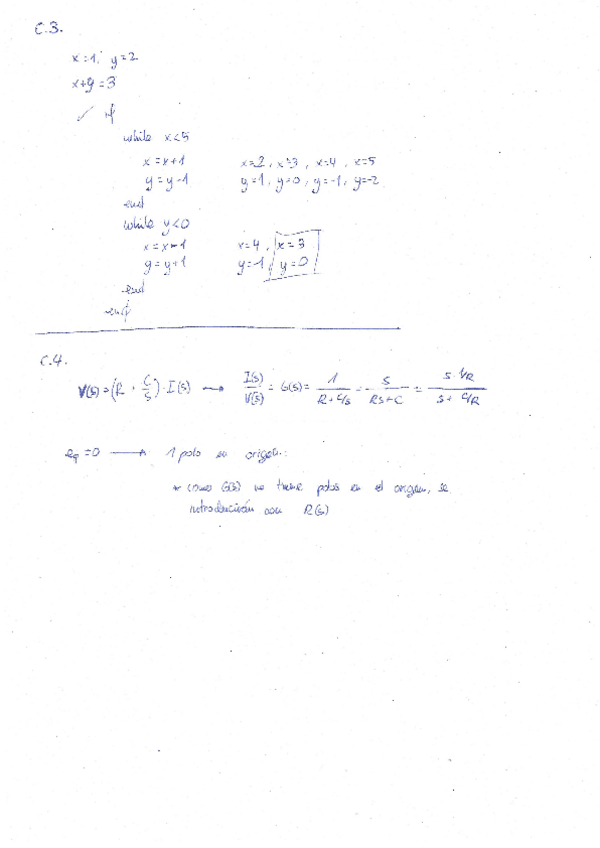 C.3.
x=1; y=2
x+y=3
✓ if
while x<5
x=x+1 x=2, x=3, x=4, x=5
y=y-1 y=1, y=0, y=-1, y=-2
end
while y<0
x=x-1 x=4, x=3
y=y+1 y=-1, y=0
end
end
C.4.
V(s)=(R+C/s)·I(s) → I(s)/V(s) = G(s) = 1/(R+C/s) = s/(Rs+C) = (s·1/R)/(s+C/R)
=0 → 1 polo en origen:
* como G(s) no tiene polos en el origen, se
introducirán con R(s)